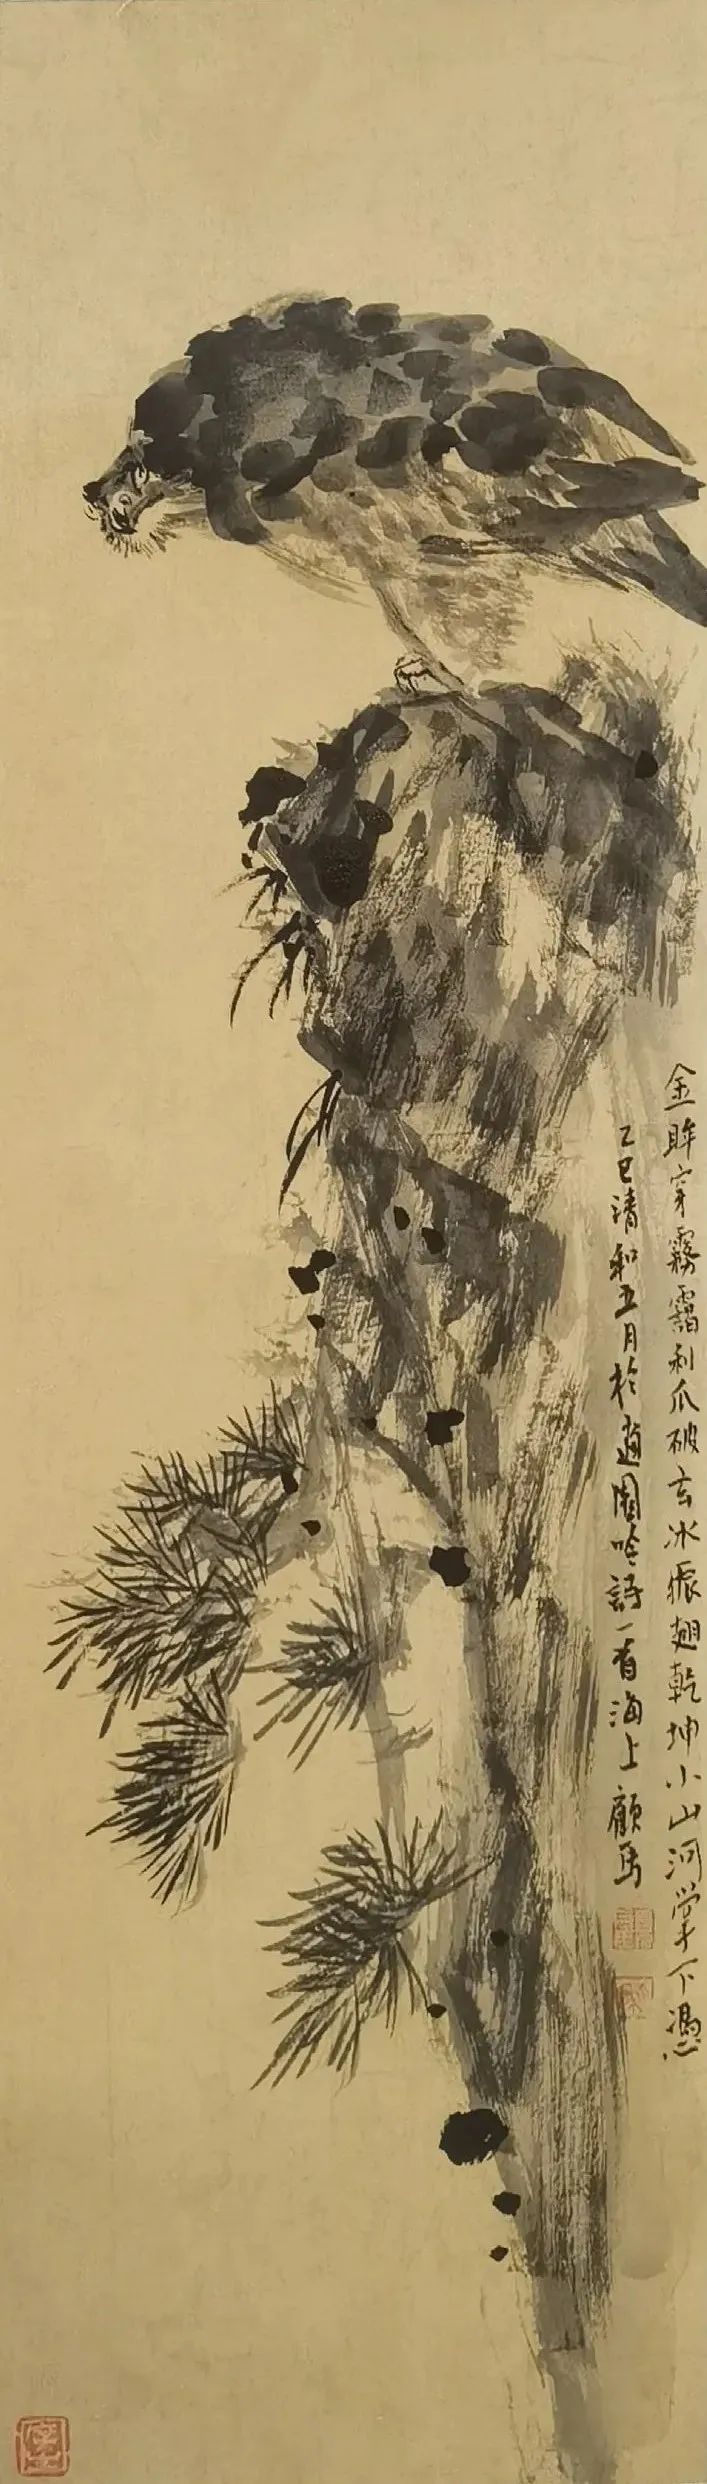 金眸穿霧靄利爪破玄冰振翅乾坤小山河掌下憑
乙巳清和五月於適園吟詩一首海上顧馬